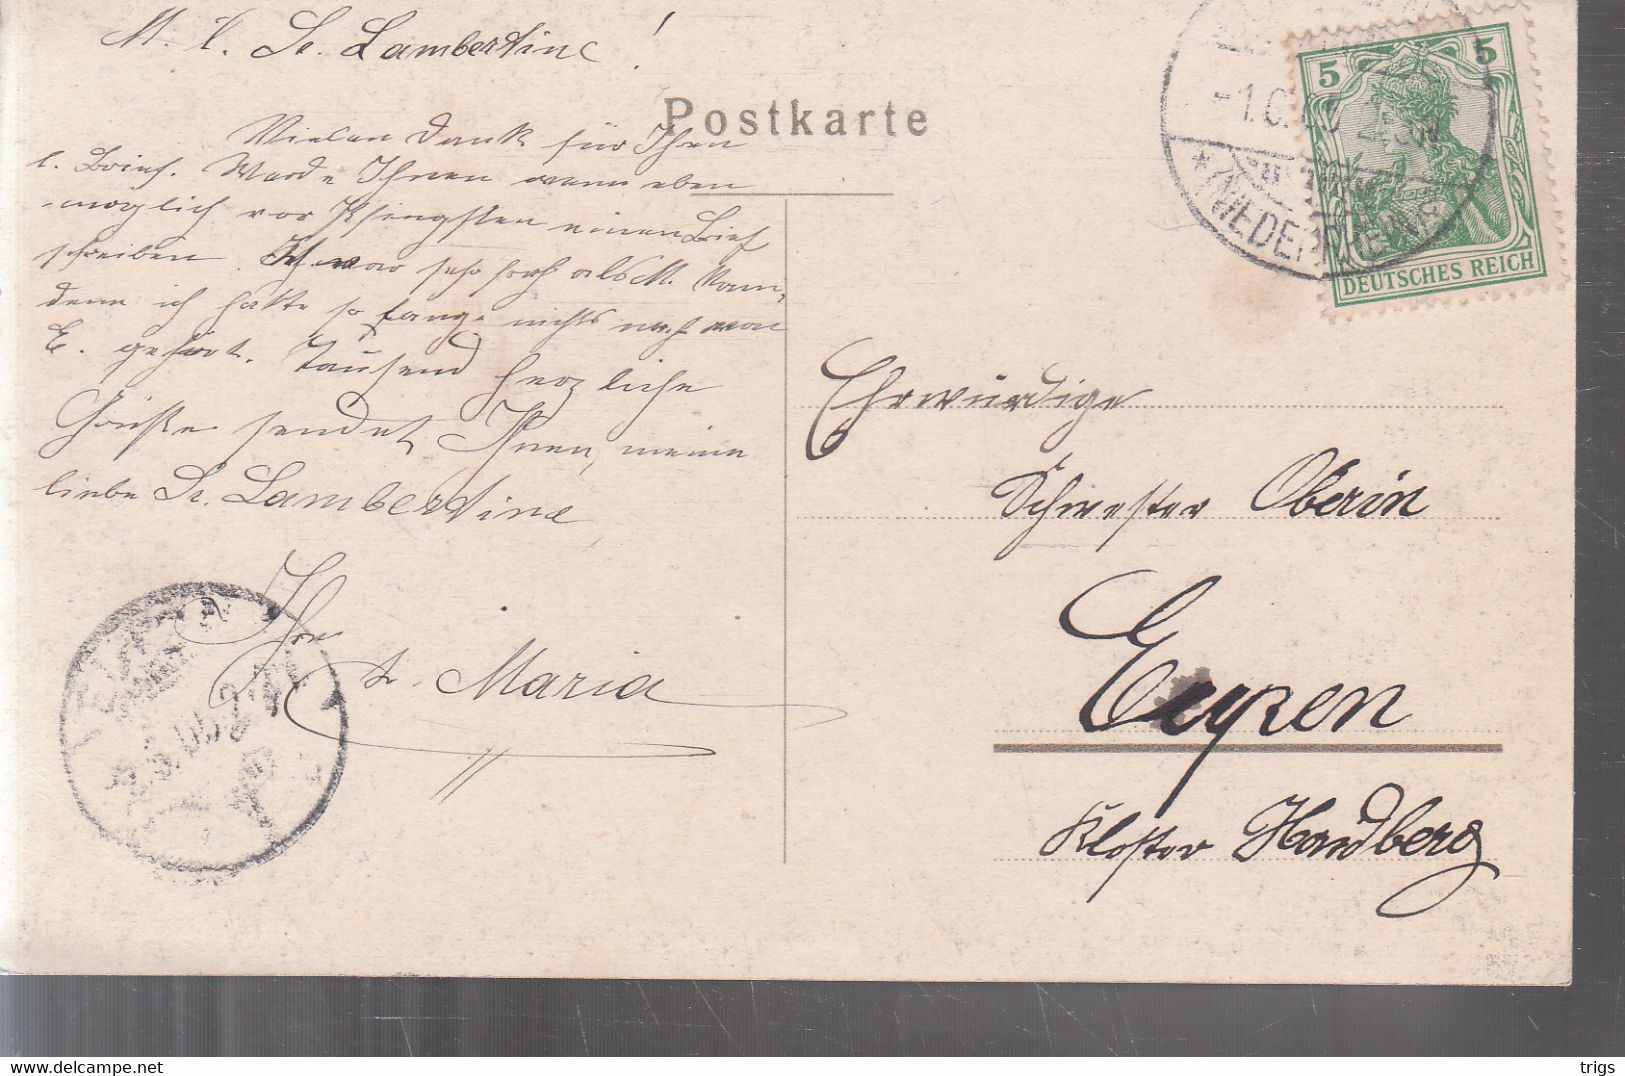 M. l. Sr. Lambertine!
Postkarte
Vielen Dank für Ihren
l. Brief. Werde Ihnen wenn eben
möglich vor Pfingsten einen Brief
schreiben. Ich war sehr froh als M. kam,
denn ich hatte so lange nichts mehr von
E. gehört. Tausend herzliche
Grüße sendet Ihnen, meine
liebe Sr. Lambertine,
Ihre
Sr. Maria
5 5
DEUTSCHES REICH
(NIEDERRHEIN)
Ehrwürdige
Schwester Oberin
Eupen
Kloster Heidberg
trigs
delcampe.net